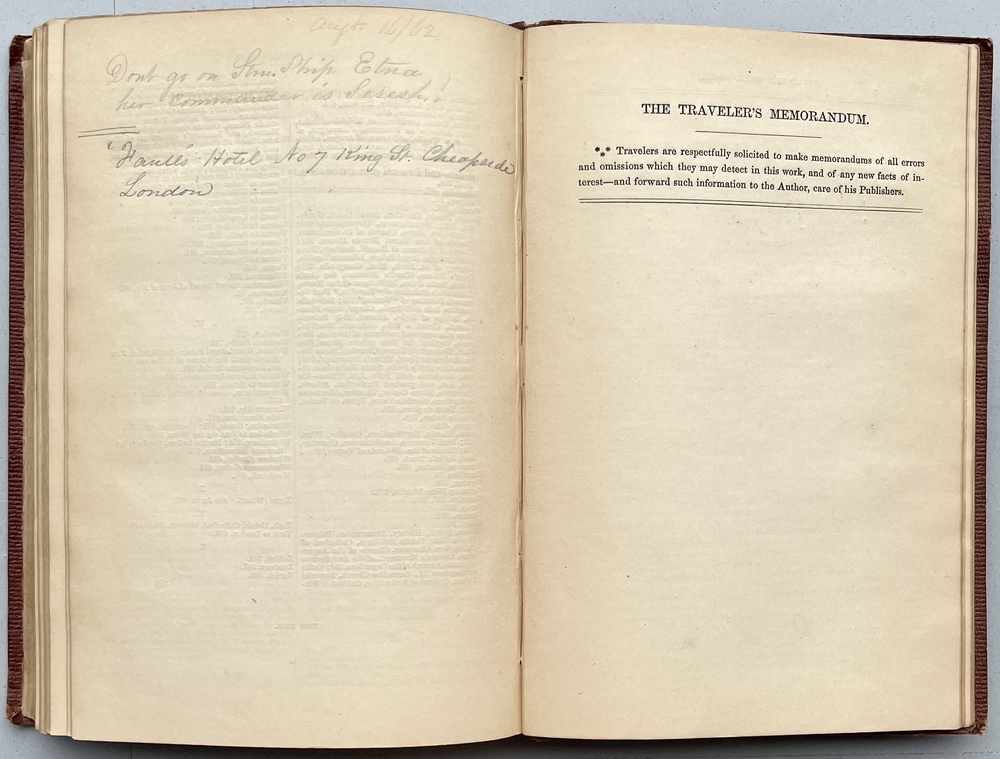 Augt 16/62
Dont go on Stm. Ship Etna
her Commander is Sesesh!
Hotel No 7 King St. Cheapside
London
THE TRAVELER'S MEMORANDUM.
⁂ Travelers are respectfully solicited to make memorandums of all errors
and omissions which they may detect in this work, and of any new facts of in-
terest—and forward such information to the Author, care of his Publishers.